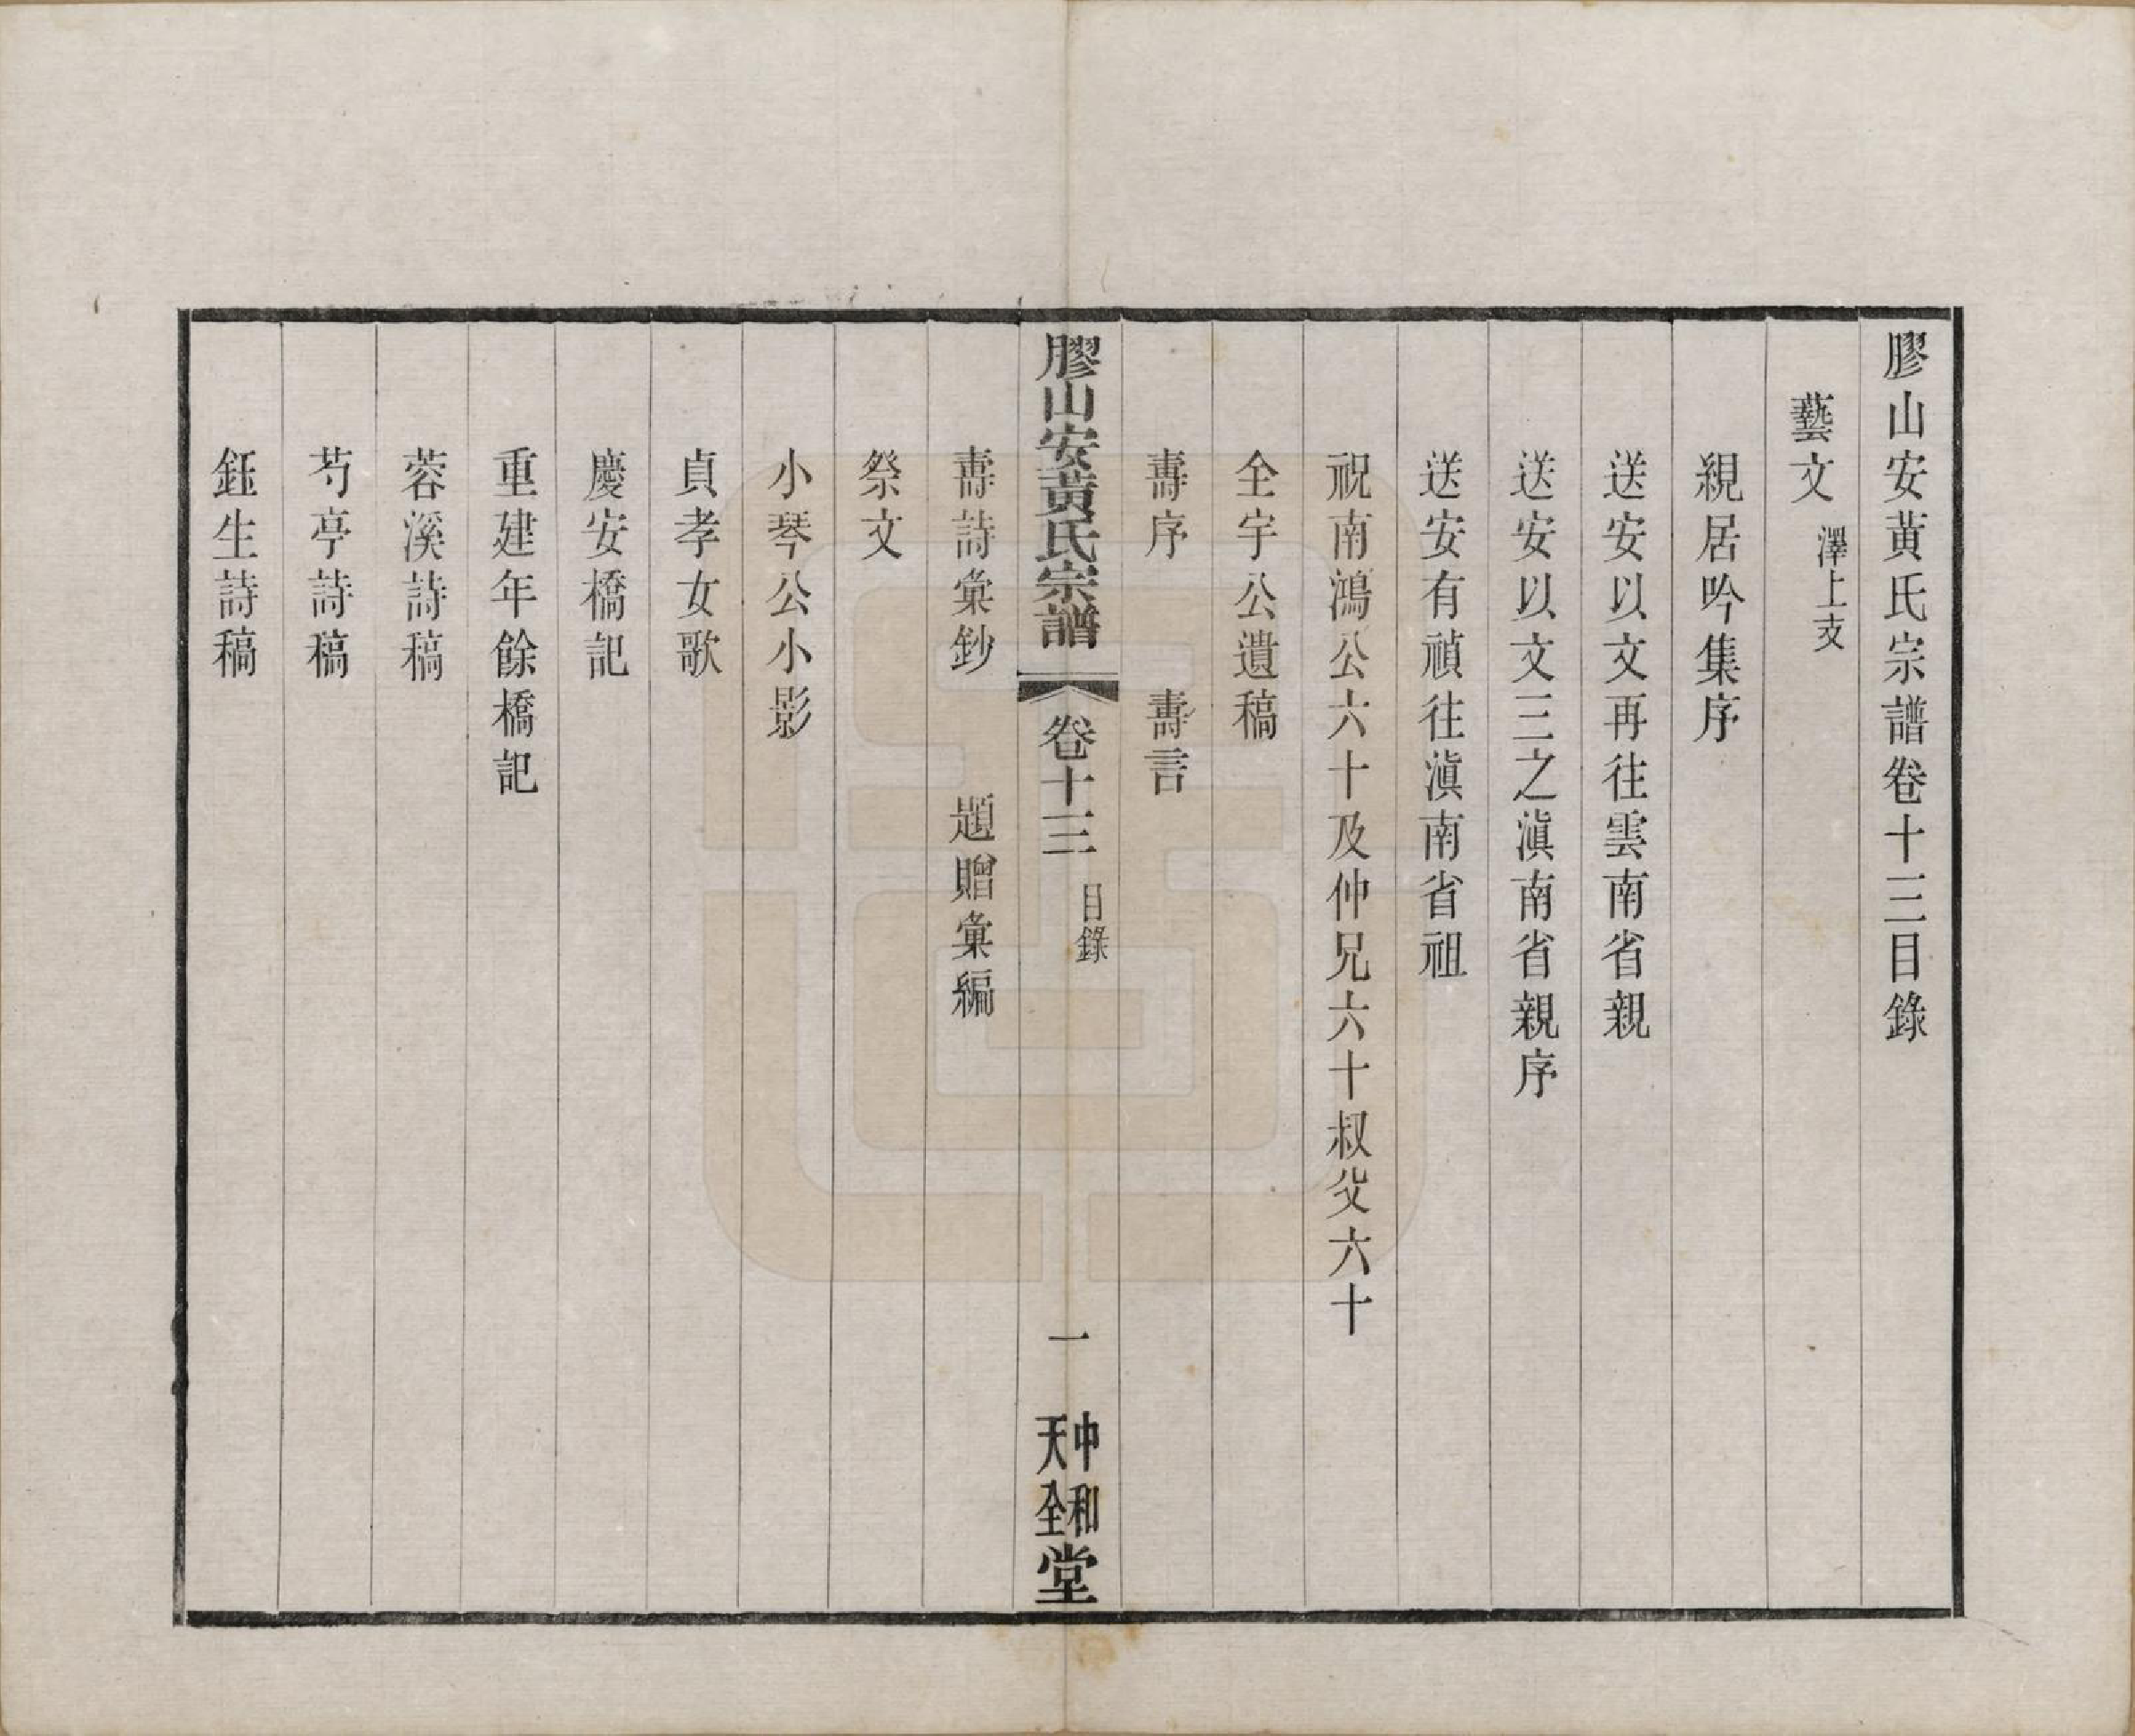 膠山安黃氏宗譜卷十三目錄
藝文 澤上支
親居吟集序
送安以文再往雲南省親
送安以文三之滇南省親序
送安有禎往滇南省祖
祝南鴻公六十及仲兄六十叔父六十
全宇公遺稿
壽序 壽言
膠山安黃氏宗譜 卷十三 目錄 一 中和天全堂
壽詩彙鈔 題贈彙編
祭文
小琴公小影
貞孝女歌
慶安橋記
重建年餘橋記
蓉溪詩稿
芍亭詩稿
鈺生詩稿